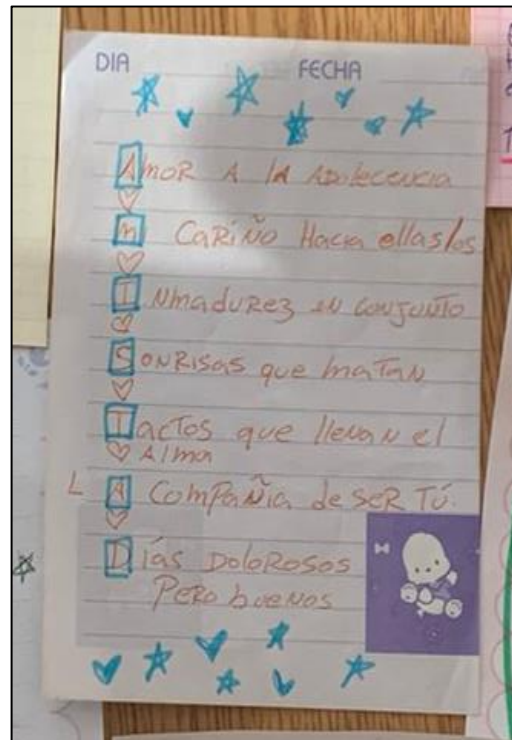 DIA FECHA
AMOR A lA ADolecencia
M CARIÑO Hacia ellas/os
INMaduRez en conJunto
SonRisas que maTan
TacTos que llenan el
Alma
LA ComPañia de SER TÚ.
Días DoloRosos
PeRo bueNos